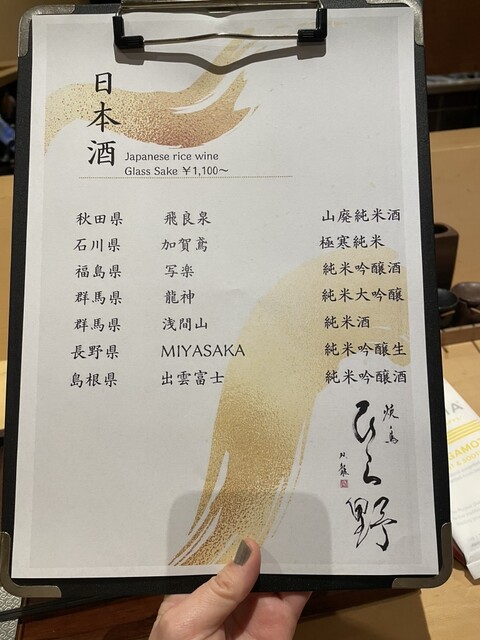 日本酒
Japanese rice wine
Glass Sake ¥1,100～
秋田県 飛良泉 山廃純米酒
石川県 加賀鳶 極寒純米
福島県 写楽 純米吟醸酒
群馬県 龍神 純米大吟醸
群馬県 浅間山 純米酒
長野県 MIYASAKA 純米吟醸生
島根県 出雲富士 純米吟醸酒
焼鳥
ひら野